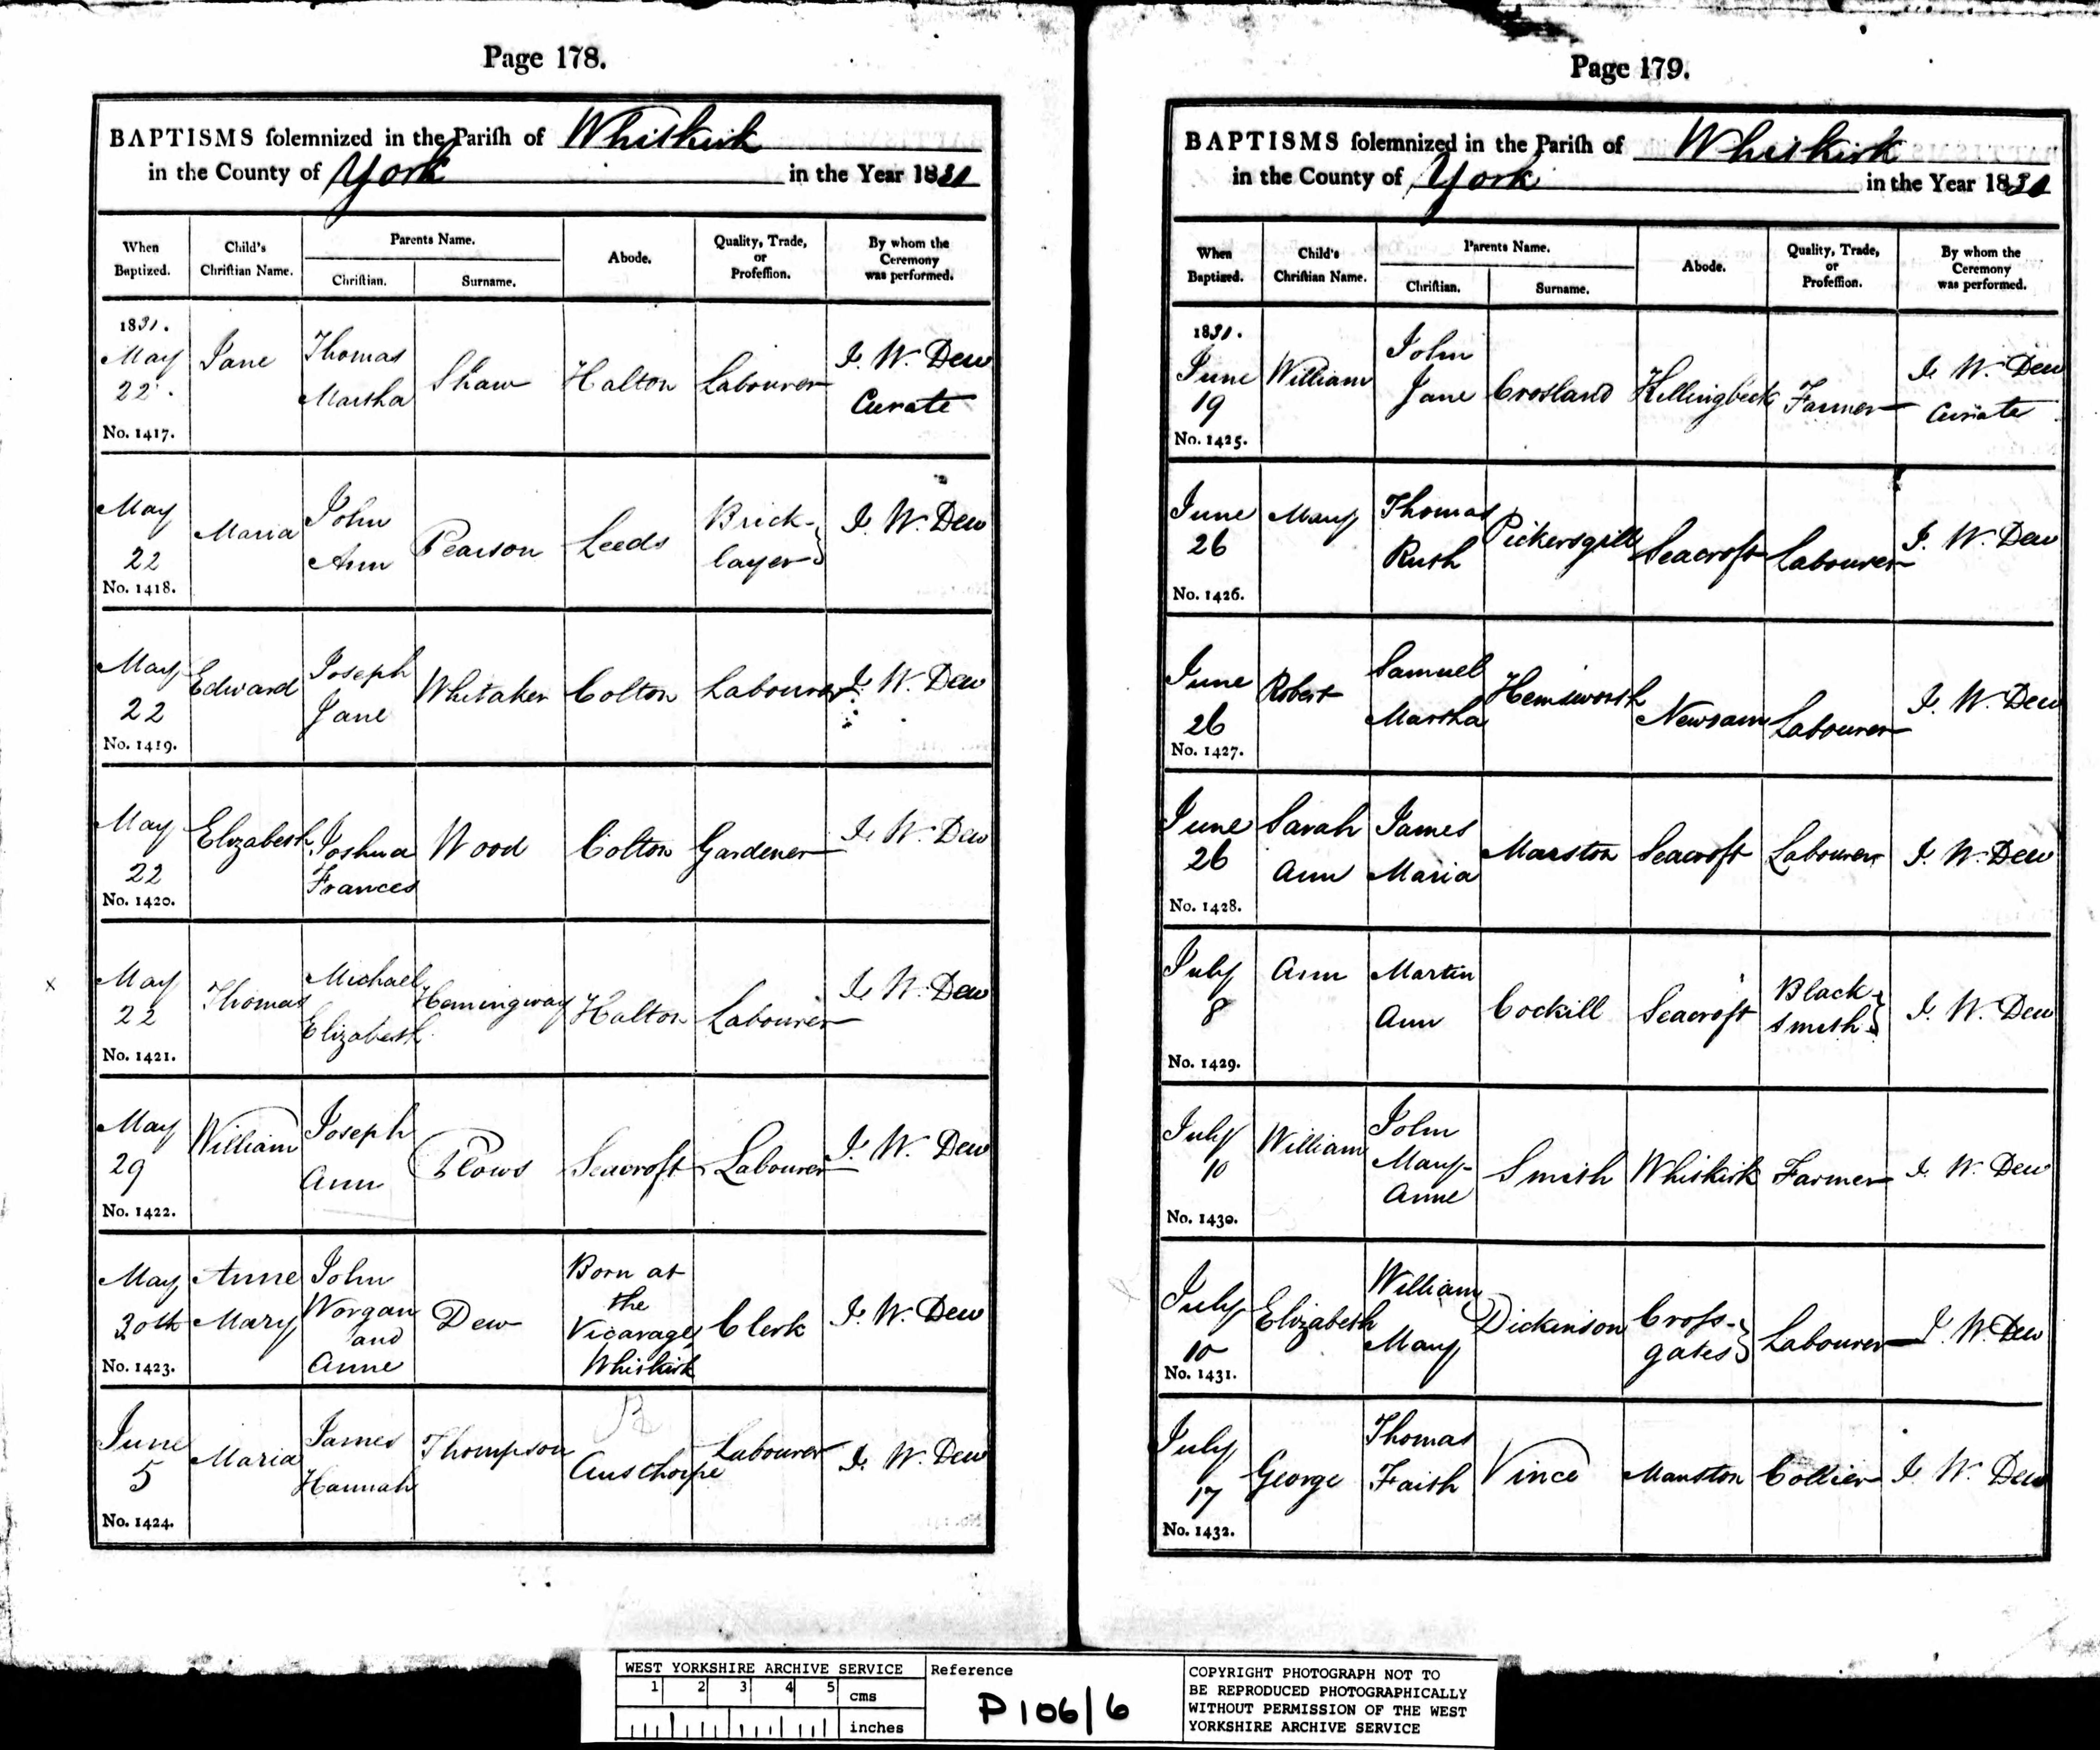 Page 178.
BAPTISMS solemnized in the Parish of Whiskirk
in the County of York in the Year 1831
When Baptized.
Child's Christian Name.
Parents Name.
Christian.
Surname.
Abode.
Quality, Trade, or Profession.
By whom the Ceremony was performed.
1831.
May 22. Jane Thomas Martha Shaw Halton Labourer J. W. Dew Curate
No. 1417.
May 22 Maria John Ann Pearson Leeds Brick-layer J. W. Dew
No. 1418.
May 22 Edward Joseph Jane Whitaker Colton Labourer J. W. Dew
No. 1419.
May 22 Elizabeth Joshua Frances Wood Colton Gardener J. W. Dew
No. 1420.
May 22 Thomas Michael Elizabeth Hemingway Halton Labourer J. W. Dew
No. 1421.
May 29 William Joseph Ann Plows Seacroft Labourer J. W. Dew
No. 1422.
May 30th Anne Mary John Worgan and Anne Dew Born at the Vicarage Whiskirk Clerk J. W. Dew
No. 1423.
June 5 Maria James Hannah Thompson Austhorpe Labourer J. W. Dew
No. 1424.
Page 179.
BAPTISMS solemnized in the Parish of Whiskirk
in the County of York in the Year 1831
When Baptized.
Child's Christian Name.
Parents Name.
Christian.
Surname.
Abode.
Quality, Trade, or Profession.
By whom the Ceremony was performed.
1831.
June 19 William John Jane Crosland Killingbeck Farmer J. W. Dew Curate
No. 1425.
June 26 Mary Thomas Ruth Pickersgill Seacroft Labourer J. W. Dew
No. 1426.
June 26 Robert Samuel Martha Hemsworth Newsam Labourer J. W. Dew
No. 1427.
June 26 Sarah Ann James Maria Marston Seacroft Labourer J. W. Dew
No. 1428.
July 8 Ann Martin Ann Cockill Seacroft Black-smith J. W. Dew
No. 1429.
July 10 William John Mary-Anne Smith Whiskirk Farmer J. W. Dew
No. 1430.
July 10 Elizabeth William Mary Dickinson Cross-gates Labourer J. W. Dew
No. 1431.
July 17 George Thomas Faith Vince Manston Collier J. W. Dew
No. 1432.
WEST YORKSHIRE ARCHIVE SERVICE
1 2 3 4 5 cms
inches
Reference
P106/6
COPYRIGHT PHOTOGRAPH NOT TO
BE REPRODUCED PHOTOGRAPHICALLY
WITHOUT PERMISSION OF THE WEST
YORKSHIRE ARCHIVE SERVICE